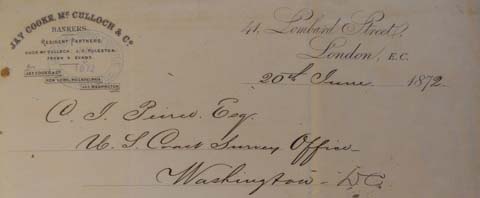 JAY COOKE, McCULLOCH & Co.
BANKERS.
RESIDENT PARTNERS.
HUGH McCULLOCH. J. H. PULESTON.
FRANK H. EVANS.
JAY COOKE & Co.
NEW YORK, PHILADELPHIA
AND WASHINGTON
1872
41, Lombard Street,
London, E.C.
20th June 1872
C. S. Peirce. Esq
U. S. Coast Survey Office
Washington - D.C.